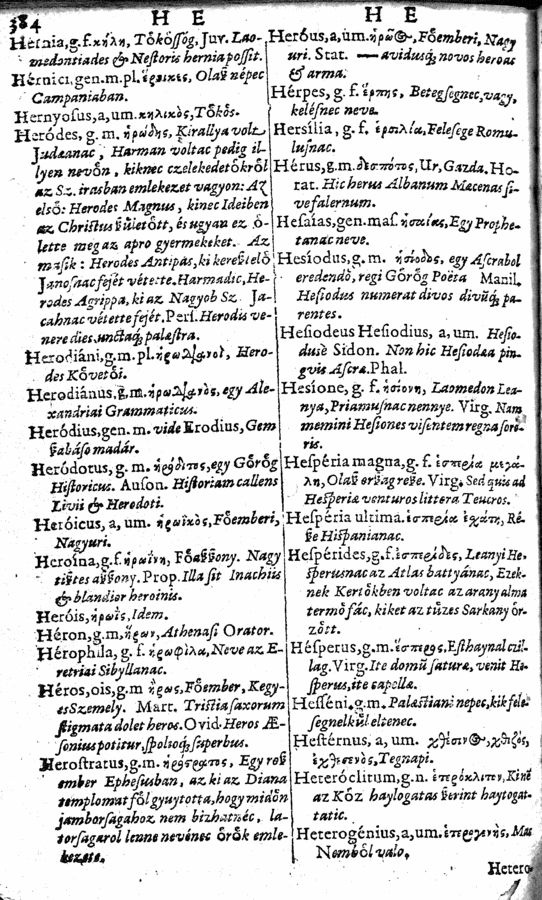 384 H E H E
Hérnia, g. f. κήλη, Tőkösség, Juv. Lao-
medontiades & Nestoris hernia possit.
Hérnici, gen. m. pl. ἕρνικες, Olaſz népec
Campaniaban.
Hernyosus, a, um. κηλικὸς, Tőkős.
Heródes, g. m. ἡρώδης, Kirallya volt
Judæanac, Harman voltac pedig il-
lyen nevőn, kiknec czelekedetőkről
az Sz. irasban emlekezet vagyon: Az
első: Herodes Magnus, kinec Ideiben
az Christus ſzületőtt, és ugyan ez ő-
lette meg az apro gyermekeket. Az
masik: Herodes Antipas, ki kereſztelő
Janosnac fejét vétette. Harmadic, He-
rodes Agrippa, ki az Nagyob Sz. Ja-
cabnac vétette fejét. Pers. Herodis ve-
nere dies, unctaq́ palæstra.
Herodiáni, g. m. pl. ἡρωδιανοὶ, Hero-
des Kővetői.
Herodiánus, g. m. ἡρωδιανὸς, egy Ale-
xandriai Grammaticus.
Heródius, gen. m. vide Erodius, Gem
ſzabásó madár.
Heródotus, g. m. ἡρόδοτος, egy Gőrőg
Historicus. Auson. Historiam callens
Livii & Herodoti.
Heróicus, a, um. ἡρωϊκὸς, Főemberi,
Nagyuri.
Heroína, g. f. ἡρωΐνη, Fő aſſzony. Nagy
tiſztes aſſzony. Prop. Illa sit Inachiis
& blandior heroinis.
Heróis, ἡρωῒς, Idem.
Héron, g. m. ἥρων, Athenasi Orator.
Hérophila, g. f. ἡροφίλα, Neve az E-
retriai Sibyllanac.
Héros, ois, g. m ἥρως, Főember, Kegy-
es Szemely. Mart. Tristia saxorum
stigmata dolet heros. Ovid. Heros Æ-
sonius potitur, spolioq́ superbus.
Herostratus, g. m. ἡρόστρατος, Egy roſz
ember Ephesusban, az ki az Diana
templomat fől gyuytotta, hogy midőn
jamborsagahoz nem bizhatnéc, la-
torsagarol lenne nevénec őrők emle-
kezete.
Heróus, a, um. ἡρῷος, Főemberi, Nagy
uri. Stat. — avidusq́, novos heroas
& arma.
Hérpes, g. f. ἕρπης, Betegsegnec, vagy,
kelésnec neve.
Hersília, g. f. ἑρσιλία, Felesege Romu-
lusnac.
Hérus, g. m. δεσπότης, Ur, Gazda. Ho-
rat. Hic herus Albanum Mæcenas si-
ve falernum.
Hesaías, gen. mas. ἡσαίας, Egy Prophe-
tanac neve.
Hesíodus, g. m. ἡσίοδος, egy Ascrabol
eredendő, regi Gőrőg Poëta Manil.
Hesiodus numerat divos divûq́, pa-
rentes.
Hesiodeus Hesiodius, a, um. Hesio-
dusé Sidon. Non hic Hesiodæa pin-
gvis Ascræ. Phal.
Hesíone, g. f. ἡσιόνη, Laomedon Lea-
nya, Priamusnac nennye. Virg. Nam
memini Hesiones visentem regna soro-
ris.
Hespéria magna, g. f. ἑσπερία μεγά-
λη, Olaſz orſzag reſze. Virg. Sed quis ad
Hesperiæ venturos littora Teucros.
Hespéria ultima. ἑσπερία ἐχάτη, Ré-
ſze Hispanianac.
Hespérides, g. f. ἑσπερίδες, Leanyi He-
sperusnac az Atlas battyánac, Ezek-
nek Kertőkben voltac az arany alma
termő fác, kiket az tűzes Sarkany őr-
zőtt.
Hésperus, g. m. ἕσπερος, Esthaynal czil-
lag. Virg. Ite domũ saturæ, venit He-
sperus, ite capellæ.
Hesséni, g. m. Palæstiani nepec, kik fele-
segnelkűl eltenec.
Hestérnus, a, um. χθεσινὸς, χθιζὸς,
ἐχθεσινὸς, Tegnapi.
Heteróclitum, g. n. ἑτερόκλιτον, Kinē
az Kőz haylogatas ſzerint haytogat-
tatic.
Heterogénius, a, um. ἑτερογενὴς, Mas
Nemből valo.
Hetero-